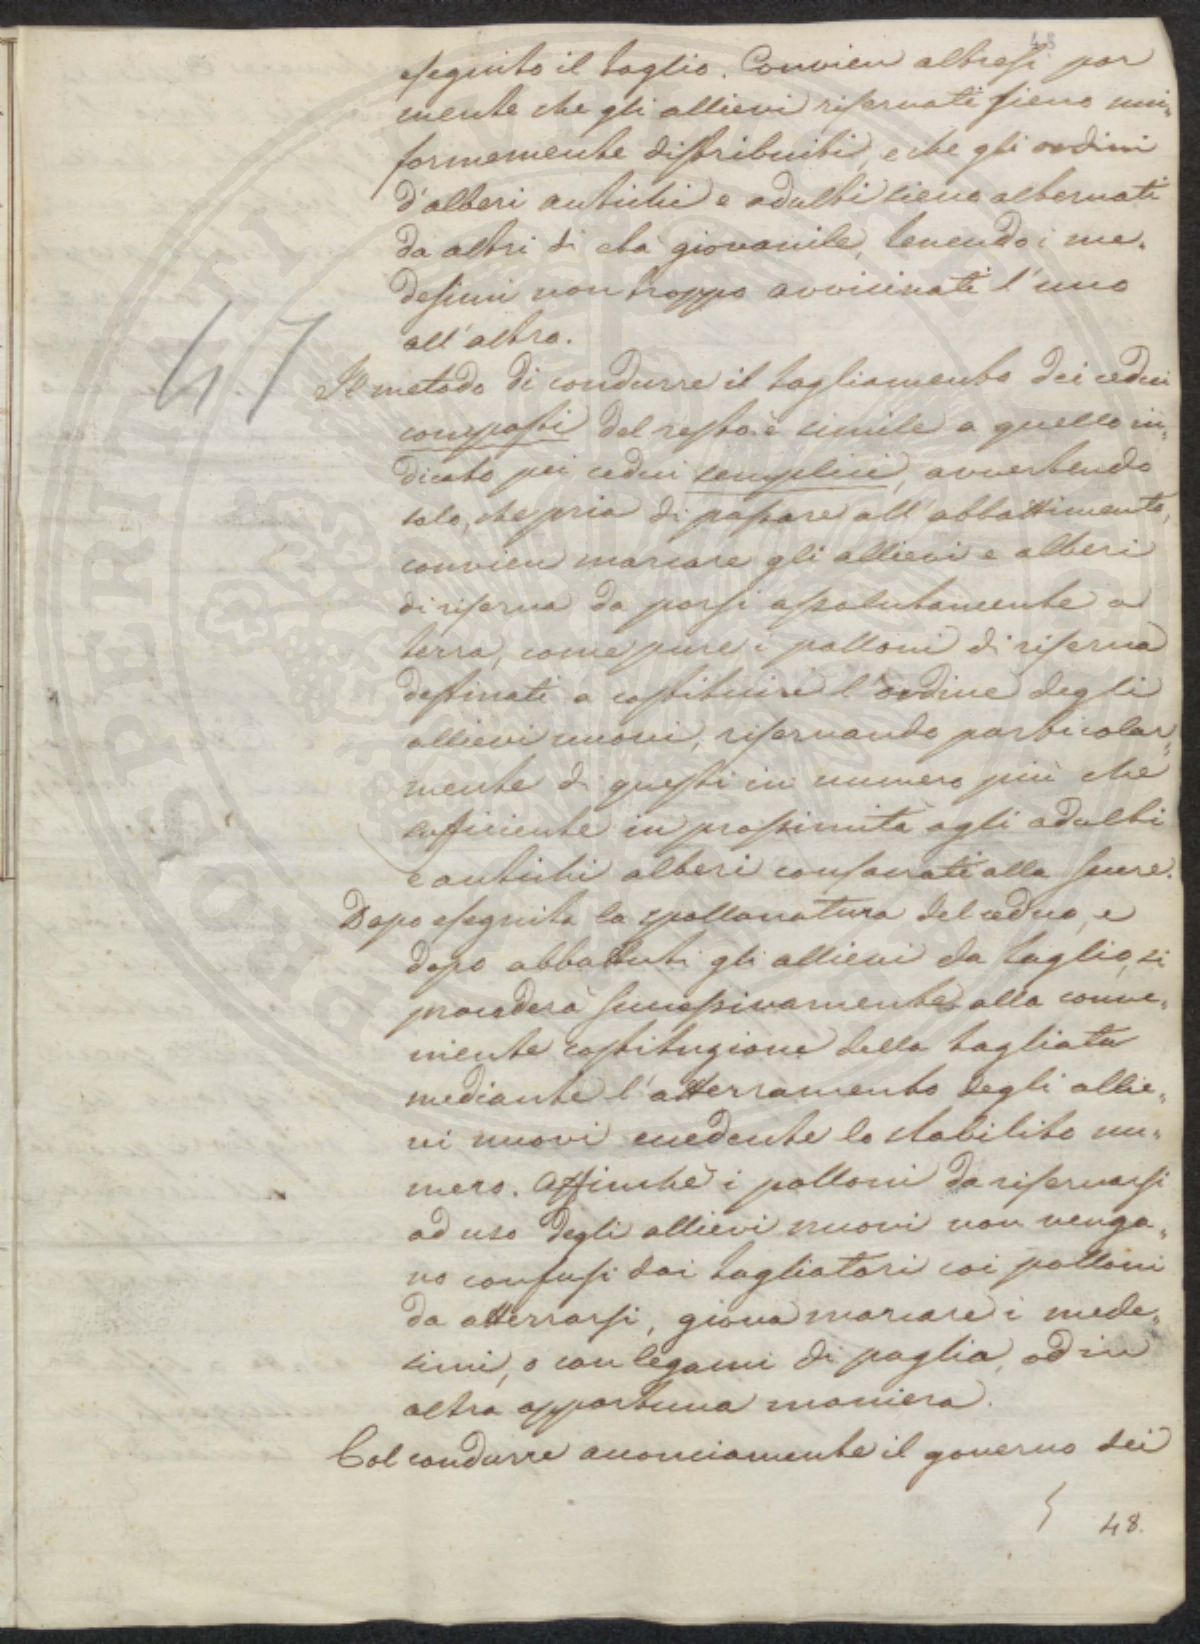 48
eseguito il taglio. Convien altresì por
mente che gli allievi riservati sieno uni-
formemente distribuiti, e che gli ordini
d'alberi antichi e adulti sieno alternati
da altri di età giovanile, tenendo i me-
desimi non troppo avvicinati l'uno
all'altro.
47
Il metodo di condurre il tagliamento dei cedui
composti del resto è simile a quello in-
dicato pei cedui semplici, avvertendo
solo, che pria di passare all'abbattimento,
convien marcare gli allievi e alberi
di riserva da porsi assolutamente a
terra, come pure i polloni di riserva
destinati a costituire l'ordine degli
allievi nuovi, riservando particolar-
mente di questi in numero più che
sufficiente in prossimità agli adulti
e antichi alberi consacrati alla scure.
Dopo eseguita la spollonatura del ceduo, e
dopo abbattuti gli allievi da taglio, si
procederà successivamente alla conve-
niente costituzione della tagliata
mediante l'atterramento degli allie-
vi nuovi eccedente lo stabilito nu-
mero. Affinchè i polloni da riservarsi
ad uso degli allievi nuovi non venga-
no confusi dai tagliatori coi polloni
da atterrarsi, giova marcare i mede-
simi, o con legami di paglia, od in
altra opportuna maniera.
Col condurre acconciamente il governo dei
48.
PROSPERITATI